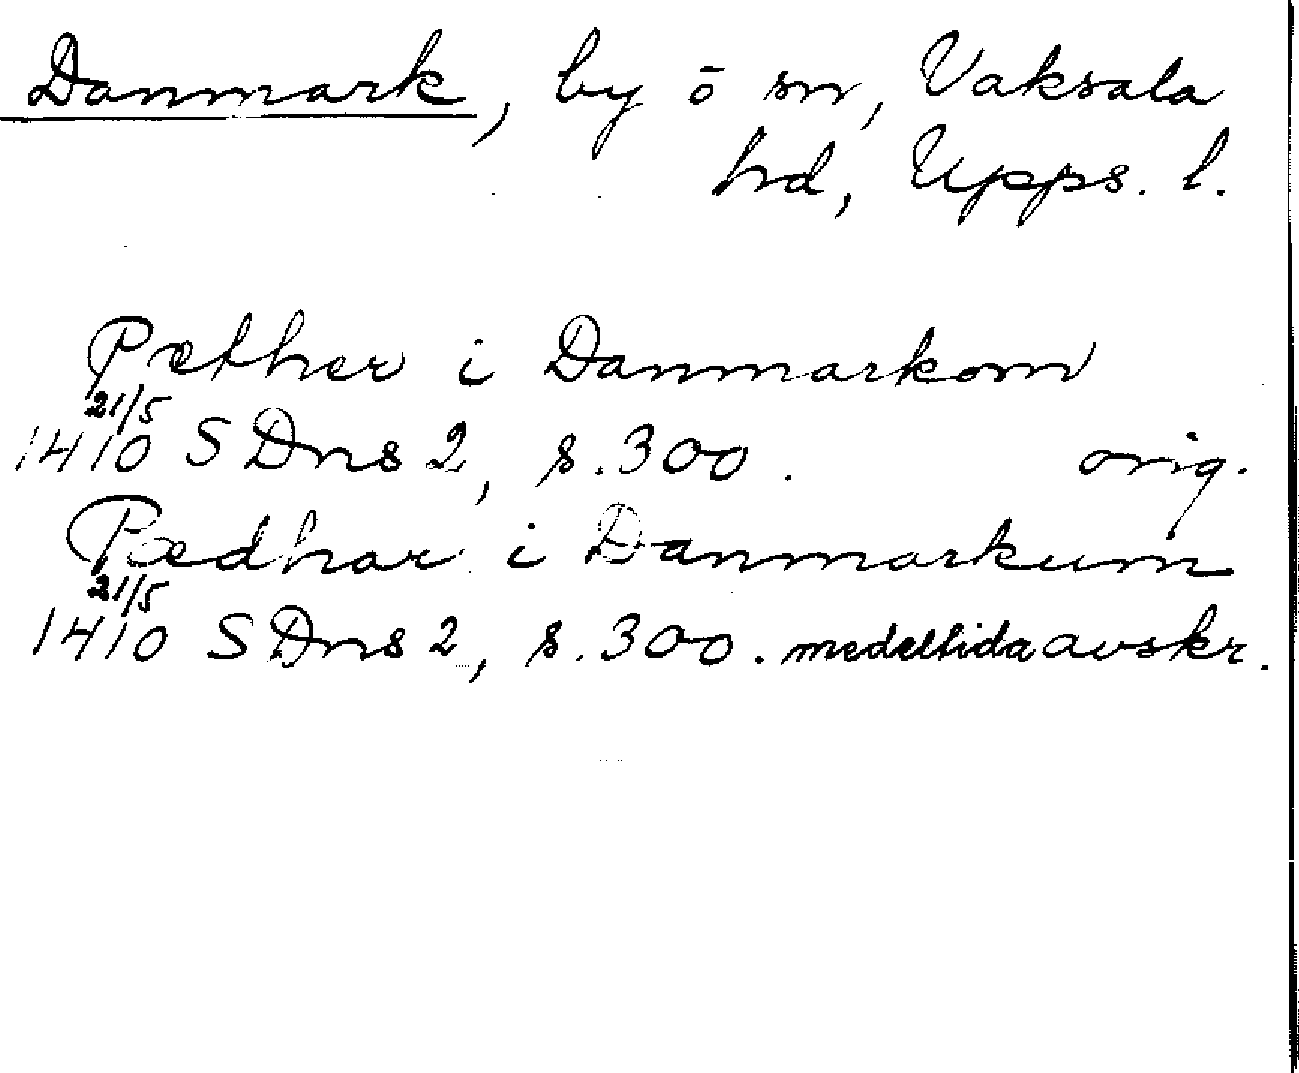 Danmark, by ō sn, Vaksala
hd, Upps. l.
Pæther i Danmarkom
21/5
1410 SDns 2, s. 300. orig.
Pædhar i Danmarkum
21/5
1410 SDns 2, s. 300. medeltida avskr.